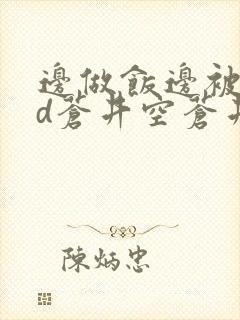 邊做飯邊被
d蒼井空蒼井
陳炳忠